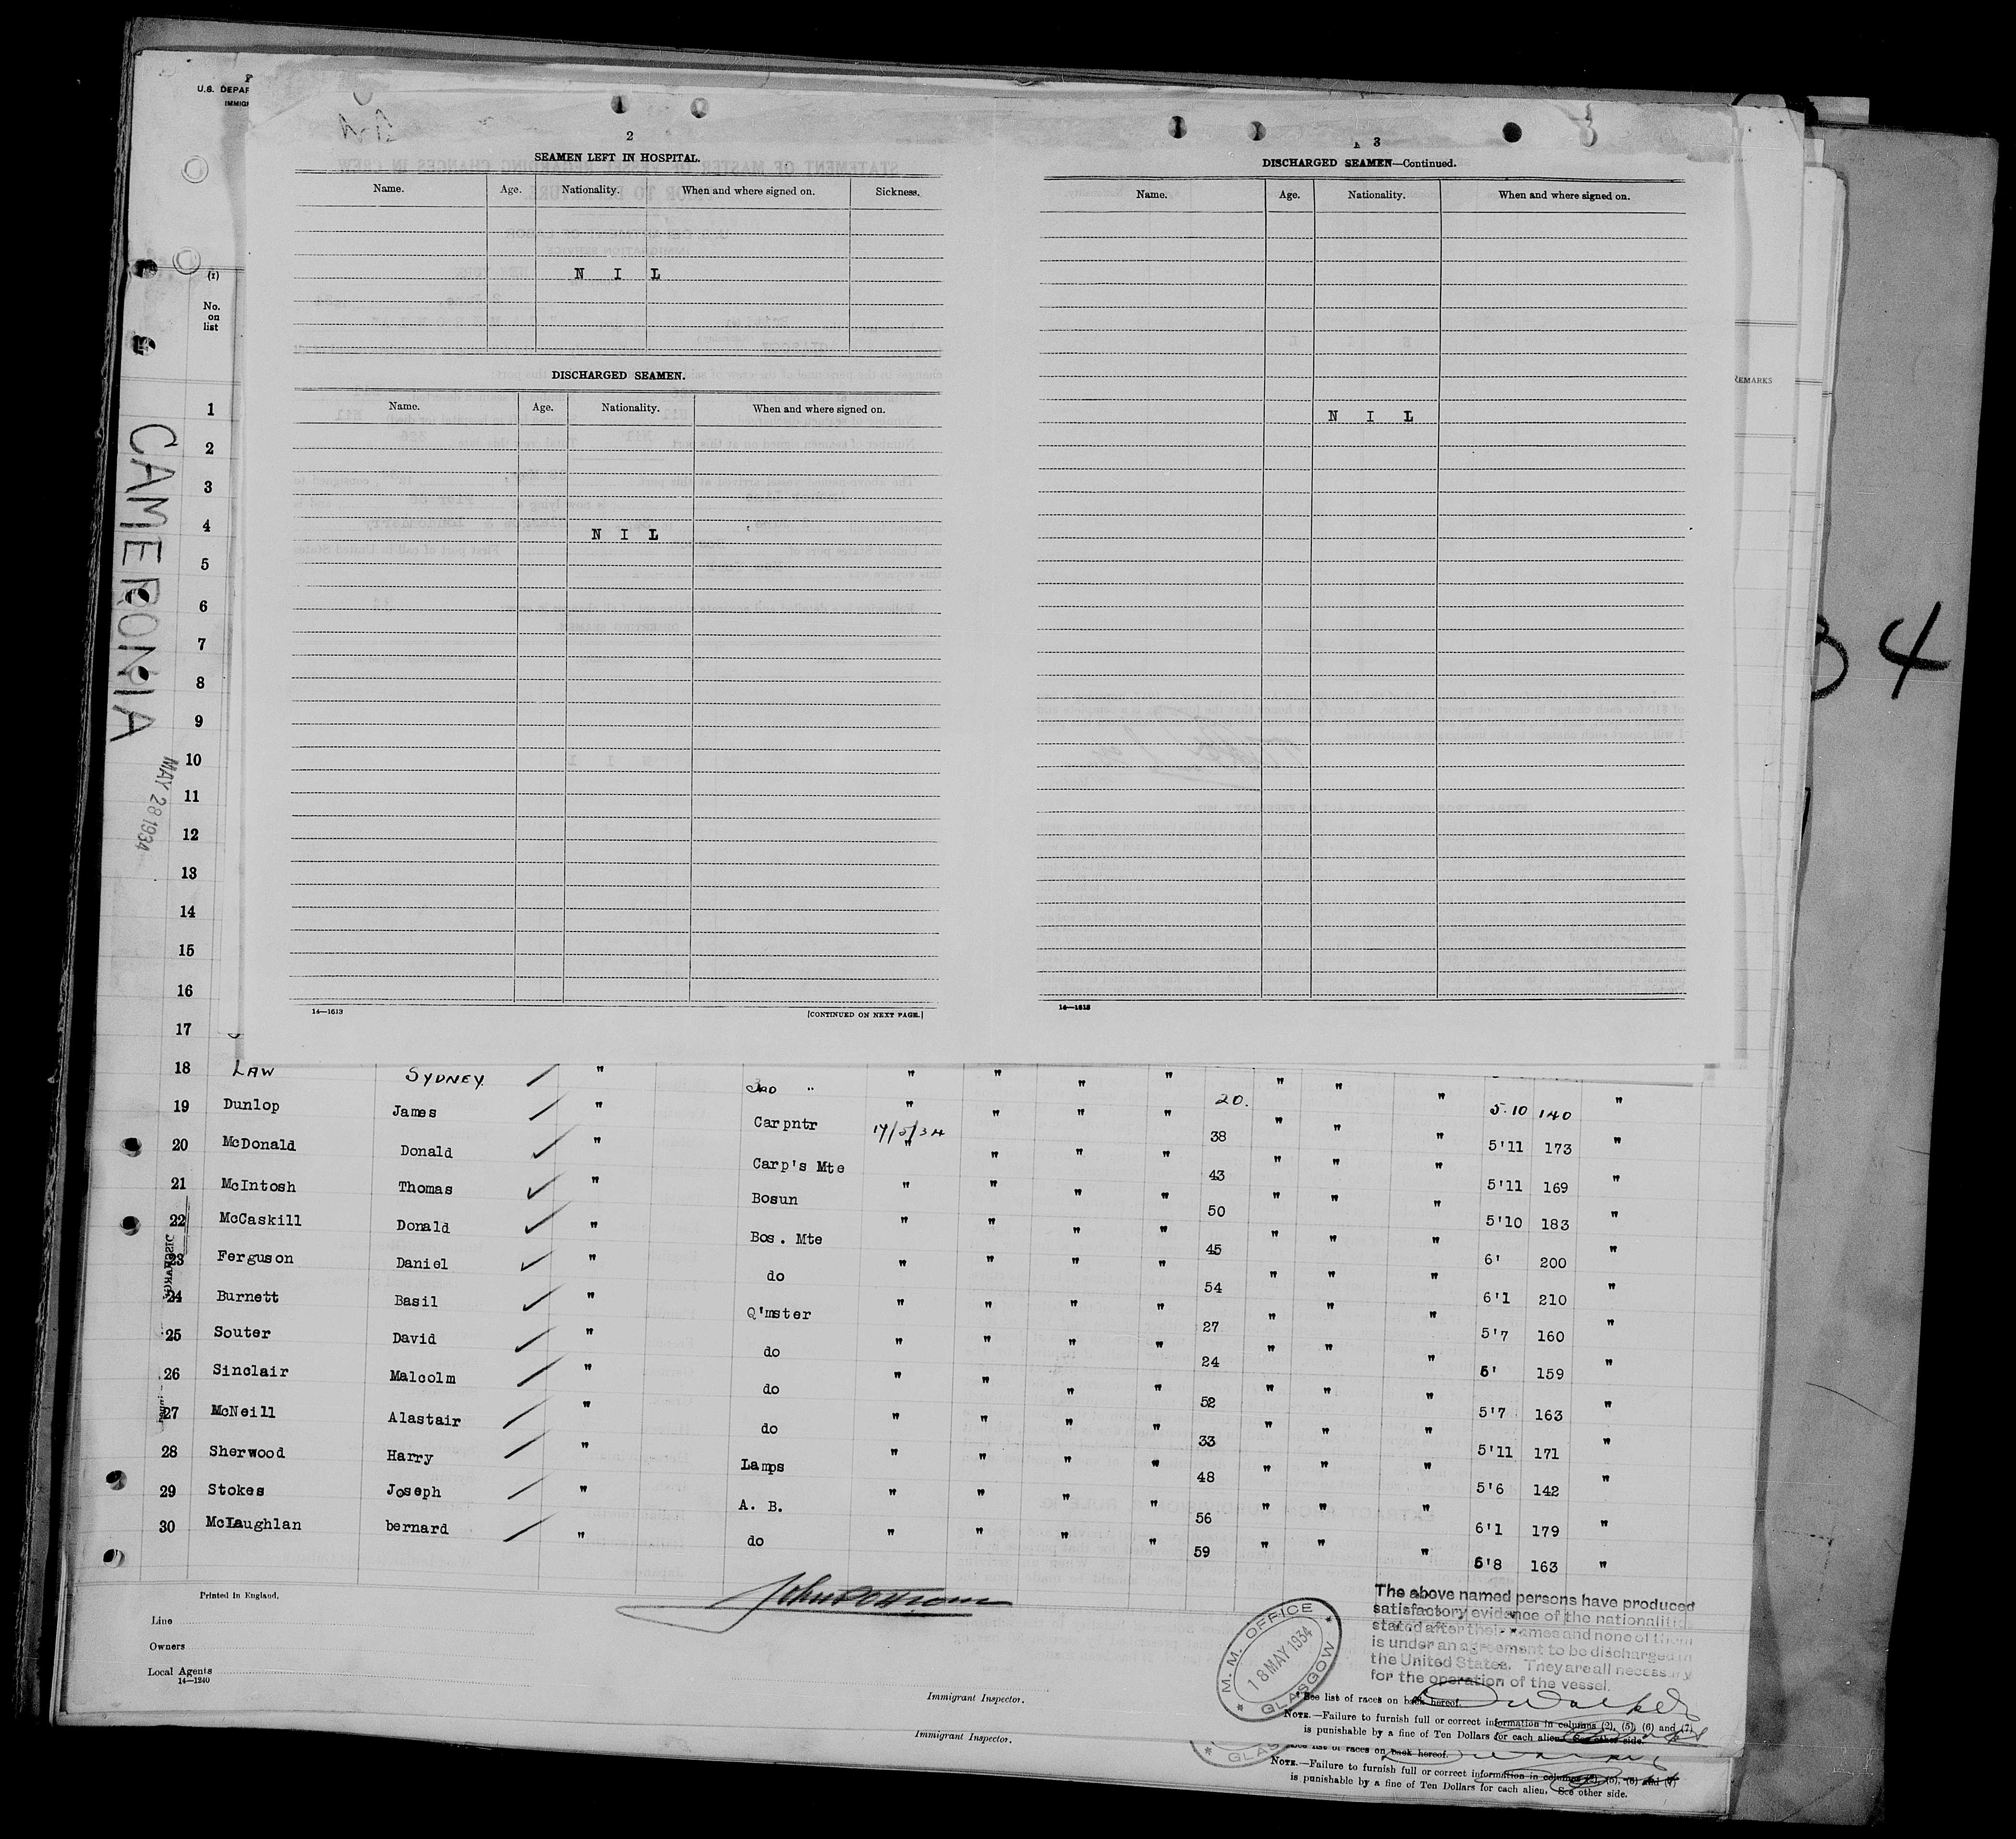 U.S. DEPAR
IMMIGR
(1)
No.
on
list
CAMERONIA
MAY 28 1934
REMARKS
34
2
SEAMEN LEFT IN HOSPITAL.
Name. Age. Nationality. When and where signed on. Sickness.
N I L
DISCHARGED SEAMEN.
Name. Age. Nationality. When and where signed on.
N I L
14—1613 [CONTINUED ON NEXT PAGE.]
3
DISCHARGED SEAMEN—Continued.
Name. Age. Nationality. When and where signed on.
N I L
14—1613
1
2
3
4
5
6
7
8
9
10
11
12
13
14
15
16
17
18 LAW SYDNEY " " " " " " 20. " " " 5.10 140 "
19 Dunlop James " Carpntr " " " " 38 " " " 5'11 173 "
20 McDonald Donald " Carp's Mte " " " " 43 " " " 5'11 169 "
21 McIntosh Thomas " Bosun " " " " 50 " " " 5'10 183 "
22 McCaskill Donald " Bos. Mte " " " " 45 " " " 6' 200 "
23 Ferguson Daniel " do " " " " 54 " " " 6'1 210 "
24 Burnett Basil " Q'mster " " " " 27 " " " 5'7 160 "
25 Souter David " do " " " " 24 " " " 6' 159 "
26 Sinclair Malcolm " do " " " " 52 " " " 5'7 163 "
27 McNeill Alastair " do " " " " 33 " " " 5'11 171 "
28 Sherwood Harry " Lamps " " " " 48 " " " 5'6 142 "
29 Stokes Joseph " A. B. " " " " 56 " " " 6'1 179 "
30 McLaughlan bernard " do " " " " 59 " " " 5'8 163 "
Printed in England.
Line
Owners
Local Agents
14—1240
Immigrant Inspector.
Immigrant Inspector.
M. M. OFFICE
18 MAY 1934
GLASGOW
The above named persons have produced
satisfactory evidence of the nationalities
stated after their names and none of them
is under an agreement to be discharged in
the United States. They are all necessary
for the operation of the vessel.
* See list of races on back hereof.
NOTE.—Failure to furnish full or correct information in columns (2), (5), (6) and (7)
is punishable by a fine of Ten Dollars for each alien. See other side.
GLAS
See list of races on back hereof.
NOTE.—Failure to furnish full or correct information in columns (2), (5), (6) and (7)
is punishable by a fine of Ten Dollars for each alien. See other side.